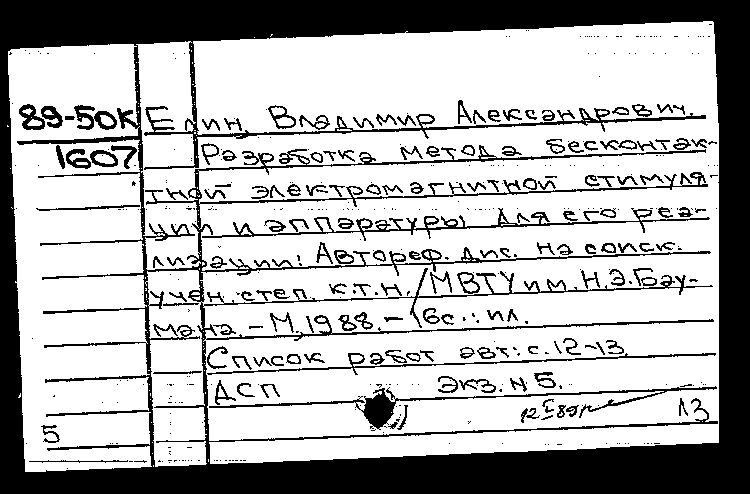 89-50К Елин, Владимир Александрович.
1607 Разработка метода бесконтак-
тной электромагнитной стимуля-
ции и аппаратуры для его реа-
лизации: Автореф. дис. на соиск.
учен. степ. к.т.н. / МВТУ им. Н.Э.Бау-
мана. - М, 1988. - 16с.: ил.
Список работ авт: с. 12-13
ДСП Экз. N 5.
5 13